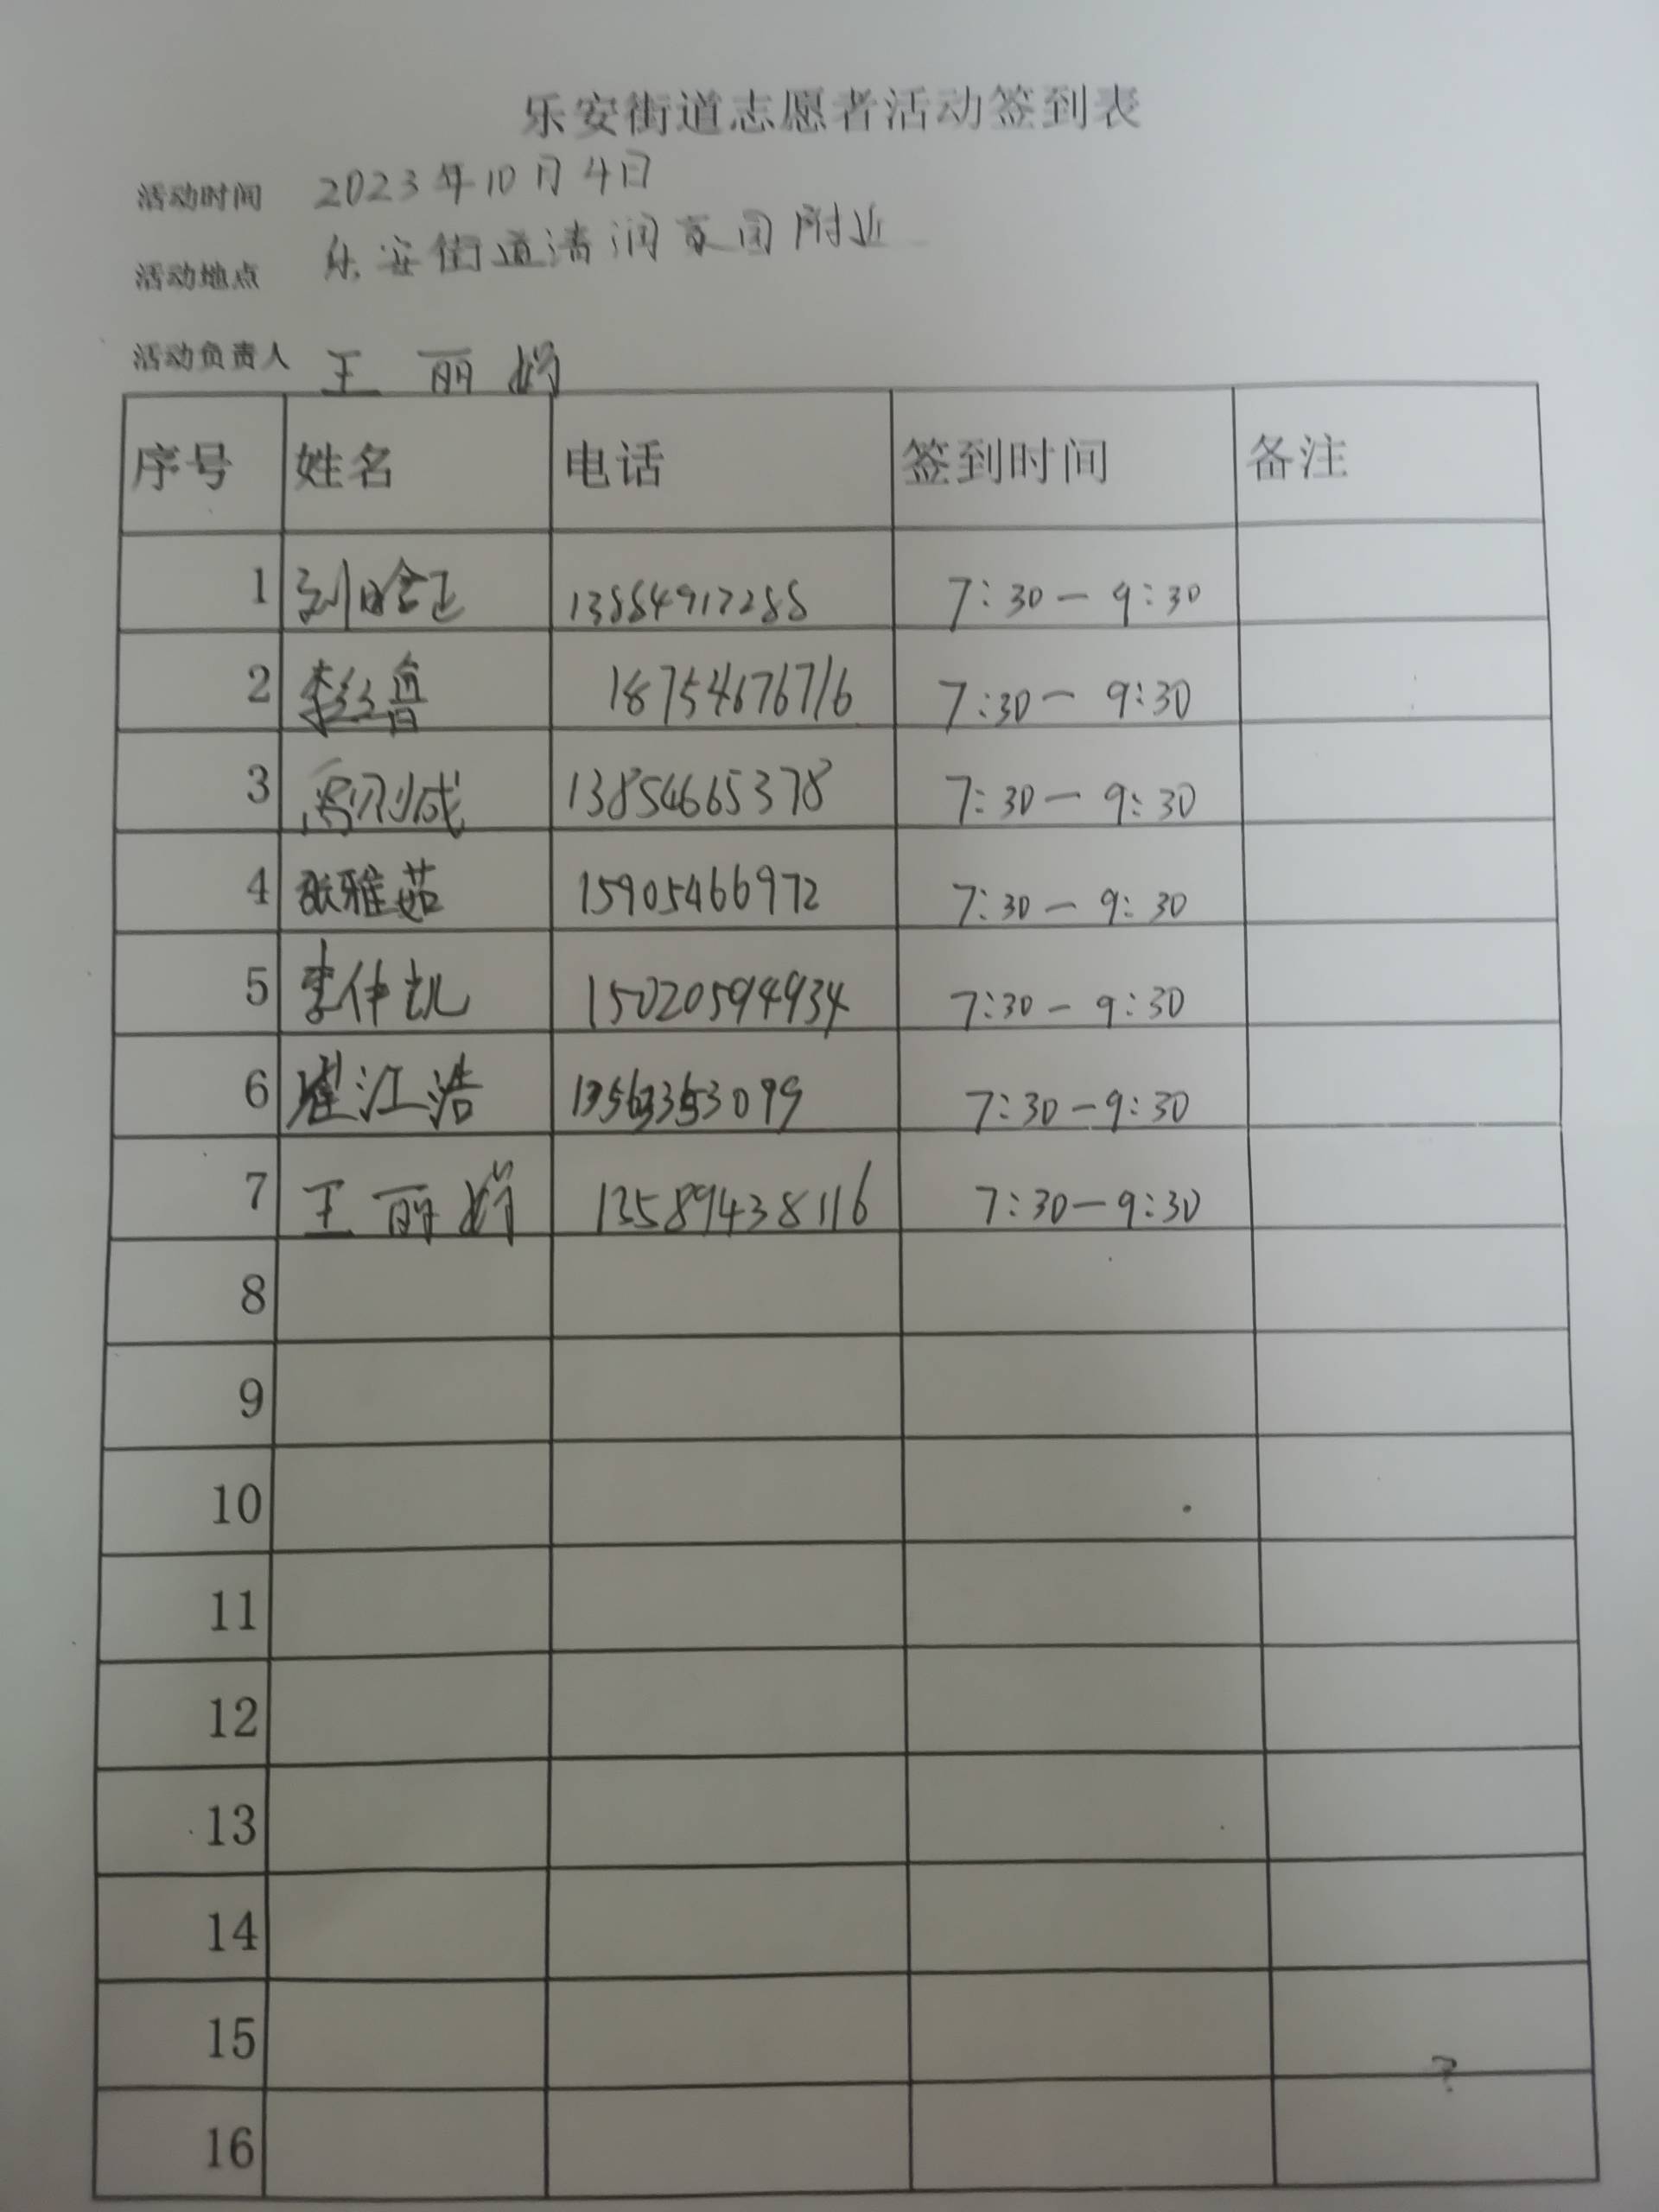 乐安街道志愿者活动签到表
活动时间 2023年10月4日
活动地点 乐安街道清润家园附近
活动负责人 王丽娟
序号 姓名 电话 签到时间 备注
1 刘晗正 13884917288 7:30-9:30
2 李红鲁 18754676716 7:30-9:30
3 13854665378 7:30-9:30
4 张雅茹 15905466972 7:30-9:30
5 李伟凯 15020594934 7:30-9:30
6 崔江浩 7:30-9:30
7 王丽娟 13589438116 7:30-9:30
8
9
10
11
12
13
14
15
?
16